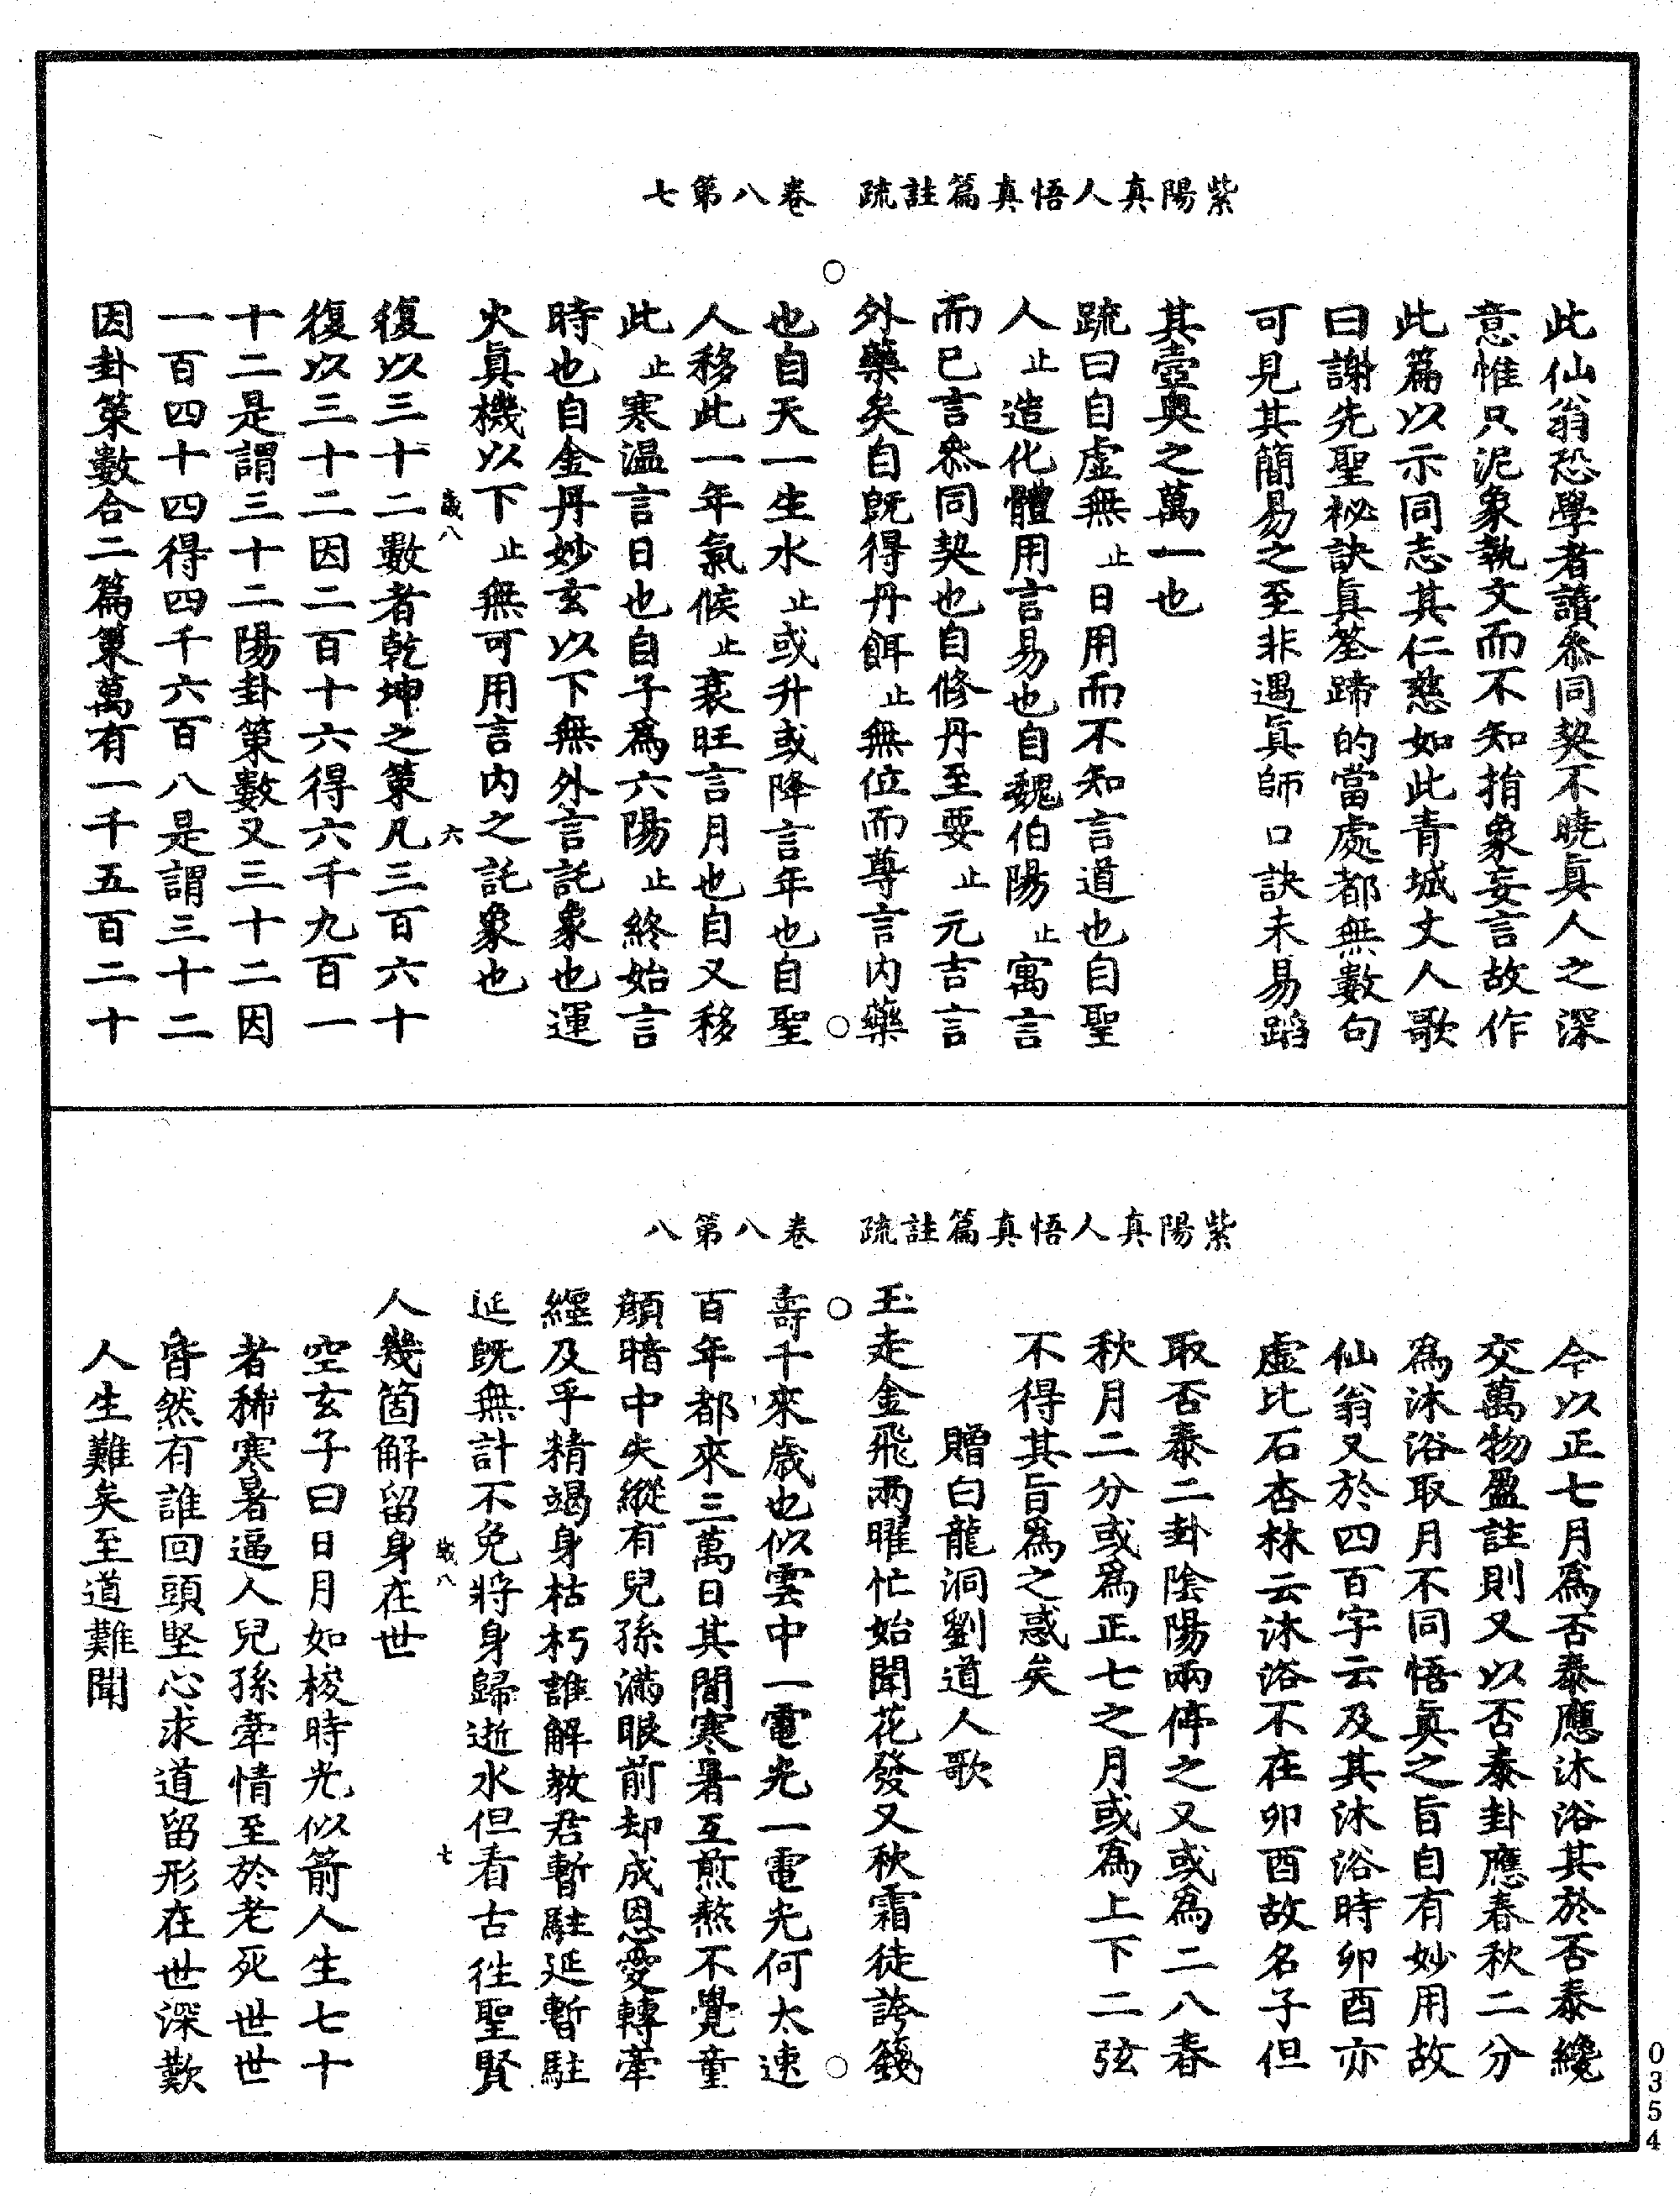 紫陽真人悟真篇註疏　卷八第七
此仙翁恐學者讀叅同契不曉眞人之深
意惟只泥象執文而不知指象妄言故作
此篇以示同志其仁慈如此青城丈人歌
曰謝先聖祕訣眞筌蹄的當處都無數句
可見其簡易之至非遇眞師口訣未易蹈
其壼奥之萬一也
疏曰自虚無止日用而不知言道也自聖
人止造化體用言易也自魏伯陽止寓言
而已言叅同契也自修丹至要止元吉言
外藥矣自既得丹餌止無位而尊言内藥
也自天一生水止或升或降言年也自聖
人移此一年氣候止衰旺言月也自又移
此止寒温言日也自子爲六陽止終始言
時也自金丹妙玄以下無外言託象也運
火眞機以下止無可用言内之託象也
歲八　六
復以三十二數者乾坤之策凡三百六十
復以三十二因二百十六得六千九百一
十二是謂三十二陽卦策數又三十二因
一百四十四得四千六百八是謂三十二
因卦策數合二篇策萬有一千五百二十
紫陽真人悟真篇註疏　卷八第八
今以正七月爲否泰應沐浴其於否泰纔
交萬物盈註則又以否泰卦應春秋二分
爲沐浴取月不同悟眞之旨自有妙用故
仙翁又於四百字云及其沐浴時卯酉亦
虚比石杏林云沐浴不在卯酉故名子但
取否泰二卦陰陽兩停之又或爲二八春
秋月二分或爲正七之月或爲上下二弦
不得其旨爲之惑矣
贈白龍洞劉道人歌
玉走金飛兩曜忙始聞花發又秋霜徒誇籛
壽千來歲也似雲中一電光一電光何太速
百年都來三萬日其間寒暑互煎熬不覺童
顔暗中失縱有兒孫滿眼前却成恩愛轉牽
纏及乎精竭身枯朽誰解教君暫駐延暫駐
延既無計不免將身歸逝水但看古徃聖賢
歲八　七
人幾箇解留身在世
空玄子曰日月如梭時光似箭人生七十
者稀寒暑逼人兒孫牽情至於老死世世
皆然有誰回頭堅心求道留形在世深歎
人生難矣至道難聞
0354